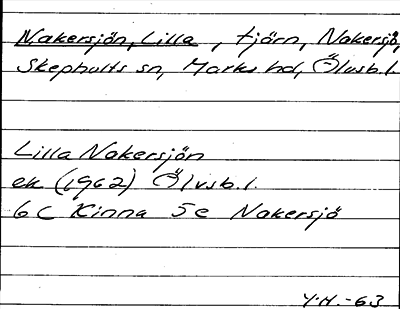 Nakersjön, Lilla, tjörn, Nakersjö,
Skephults sn, Marks hd, Älvsb. l.
Lilla Nakersjön
ek (1962) Älvsb. l.
6C Kinna 5e Nakersjö
Y.H.-63